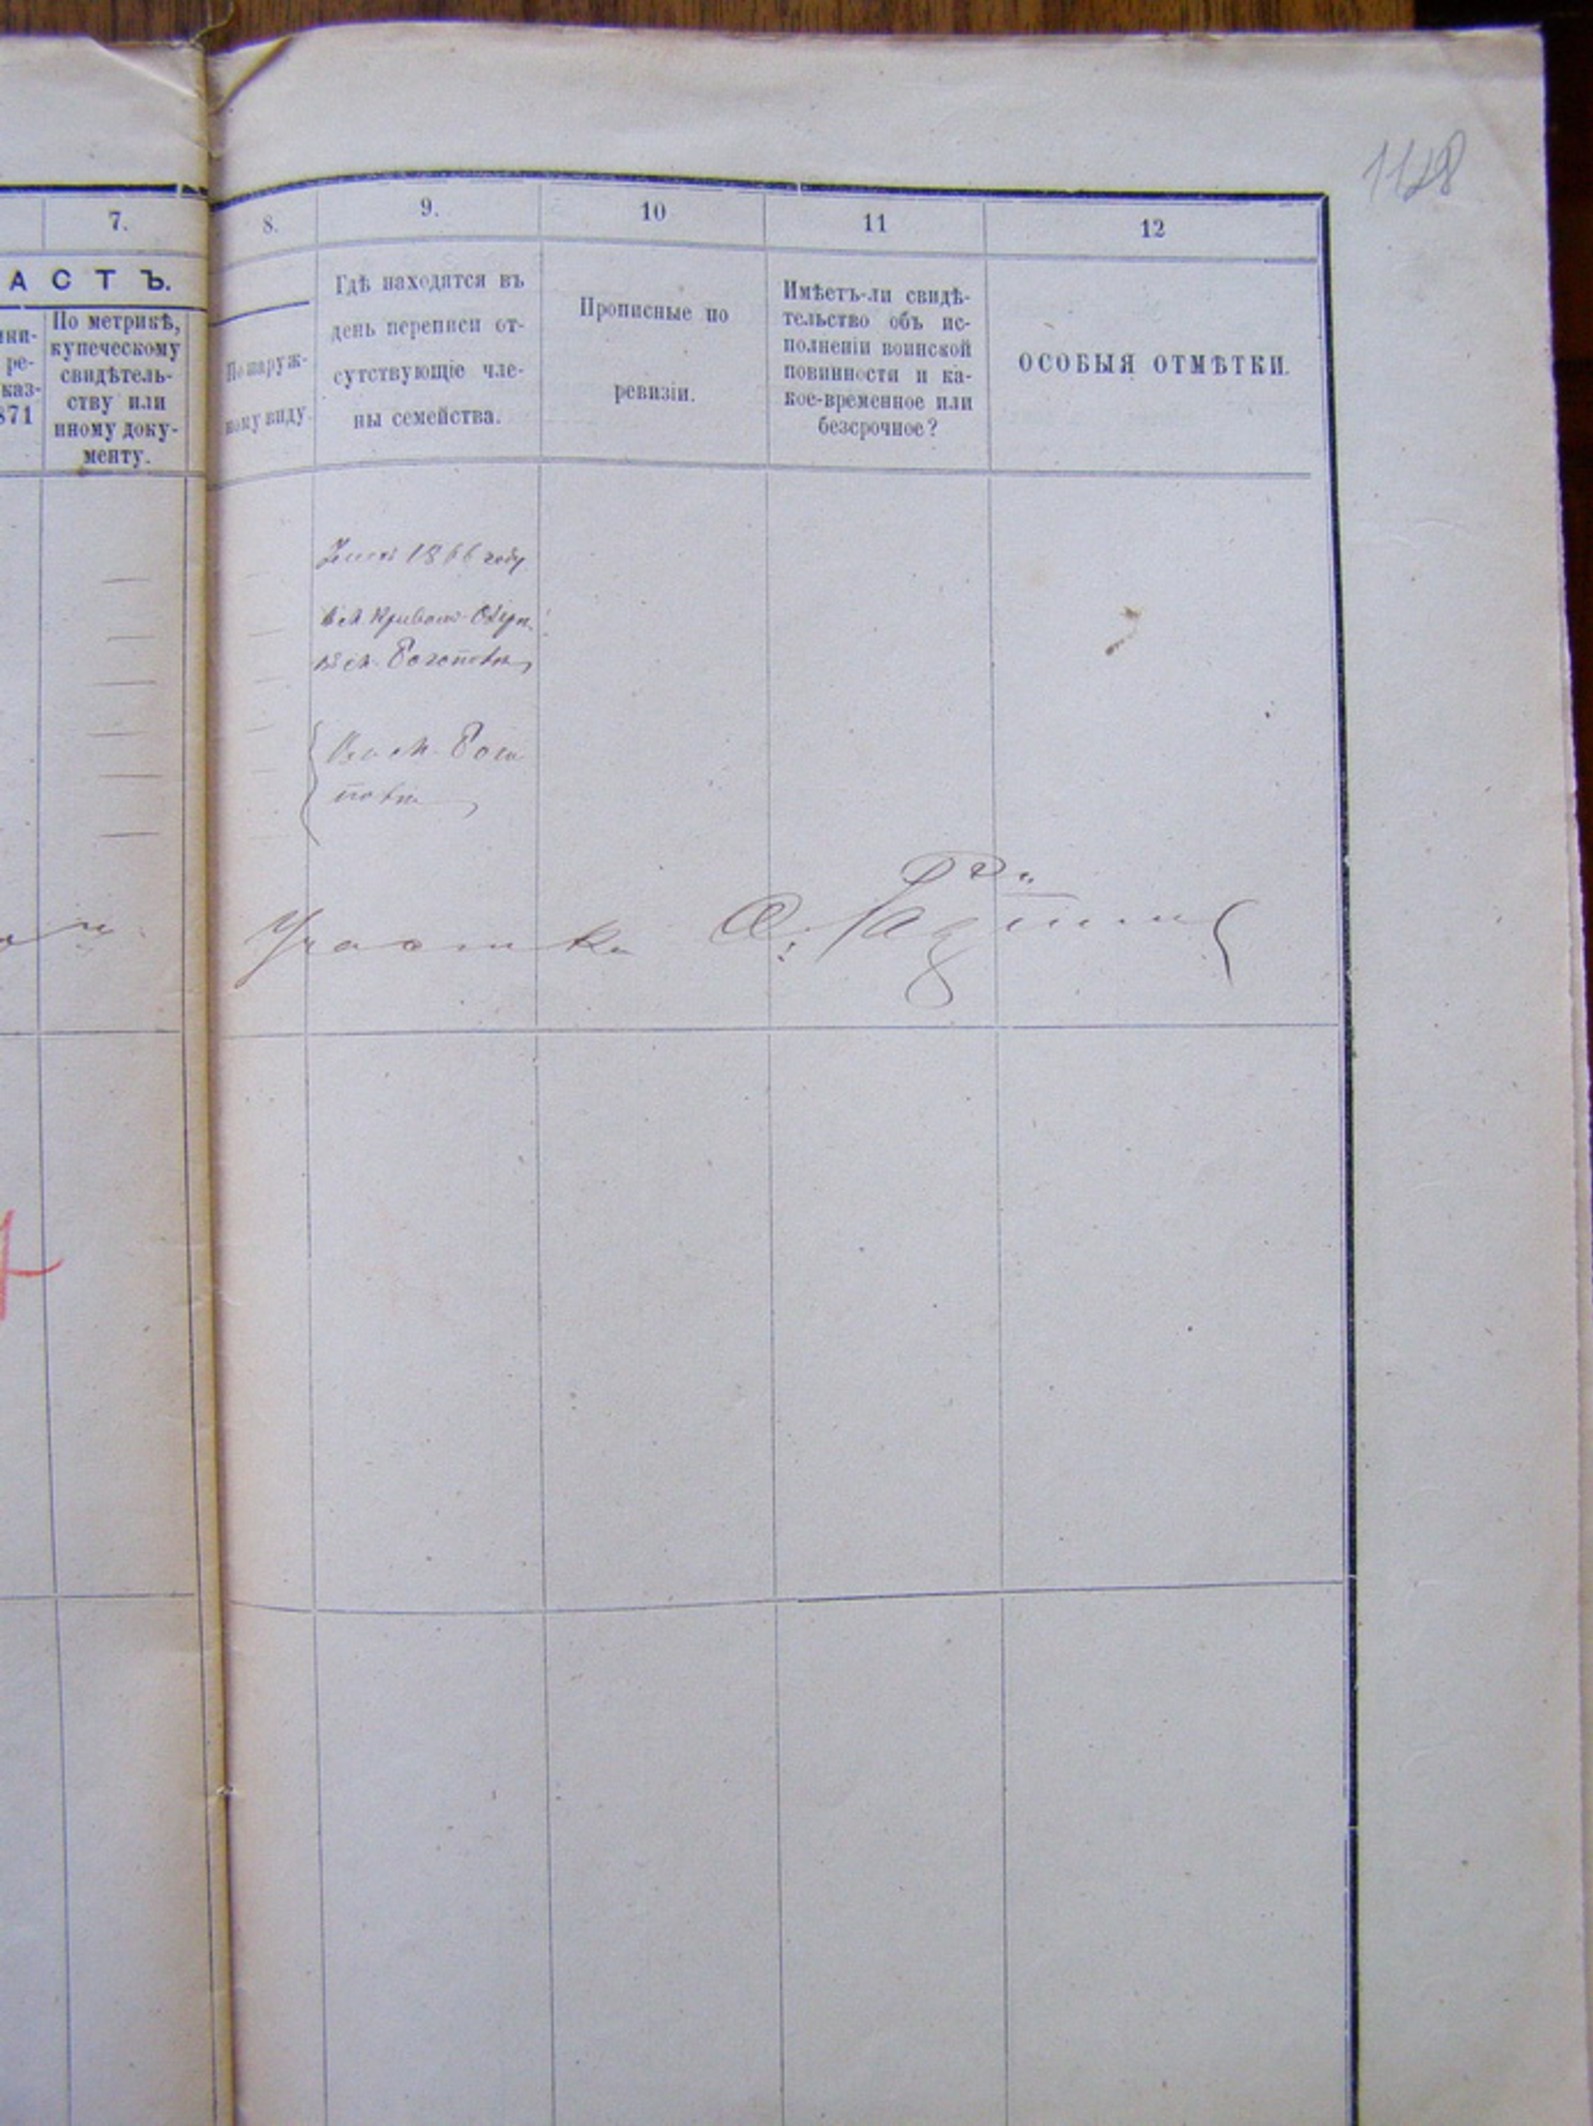 1128
7.
8.
9.
10
11
12
АСТЪ.
ни-
ре-
каз-
871
По метрикѣ,
купеческому
свидѣтель-
ству или
иному доку-
менту.
По наруж-
ному виду.
Гдѣ находятся въ
день переписи от-
сутствующіе чле-
ны семейства.
Прописные по
ревизіи.
Имѣетъ-ли свидѣ-
тельство объ ис-
полненіи воинской
повинности и ка-
кое-временное или
безсрочное?
ОСОБЫЯ ОТМѢТКИ.
1866 году
м. Кривомъ-Озерѣ
въ м.
м.
Участка